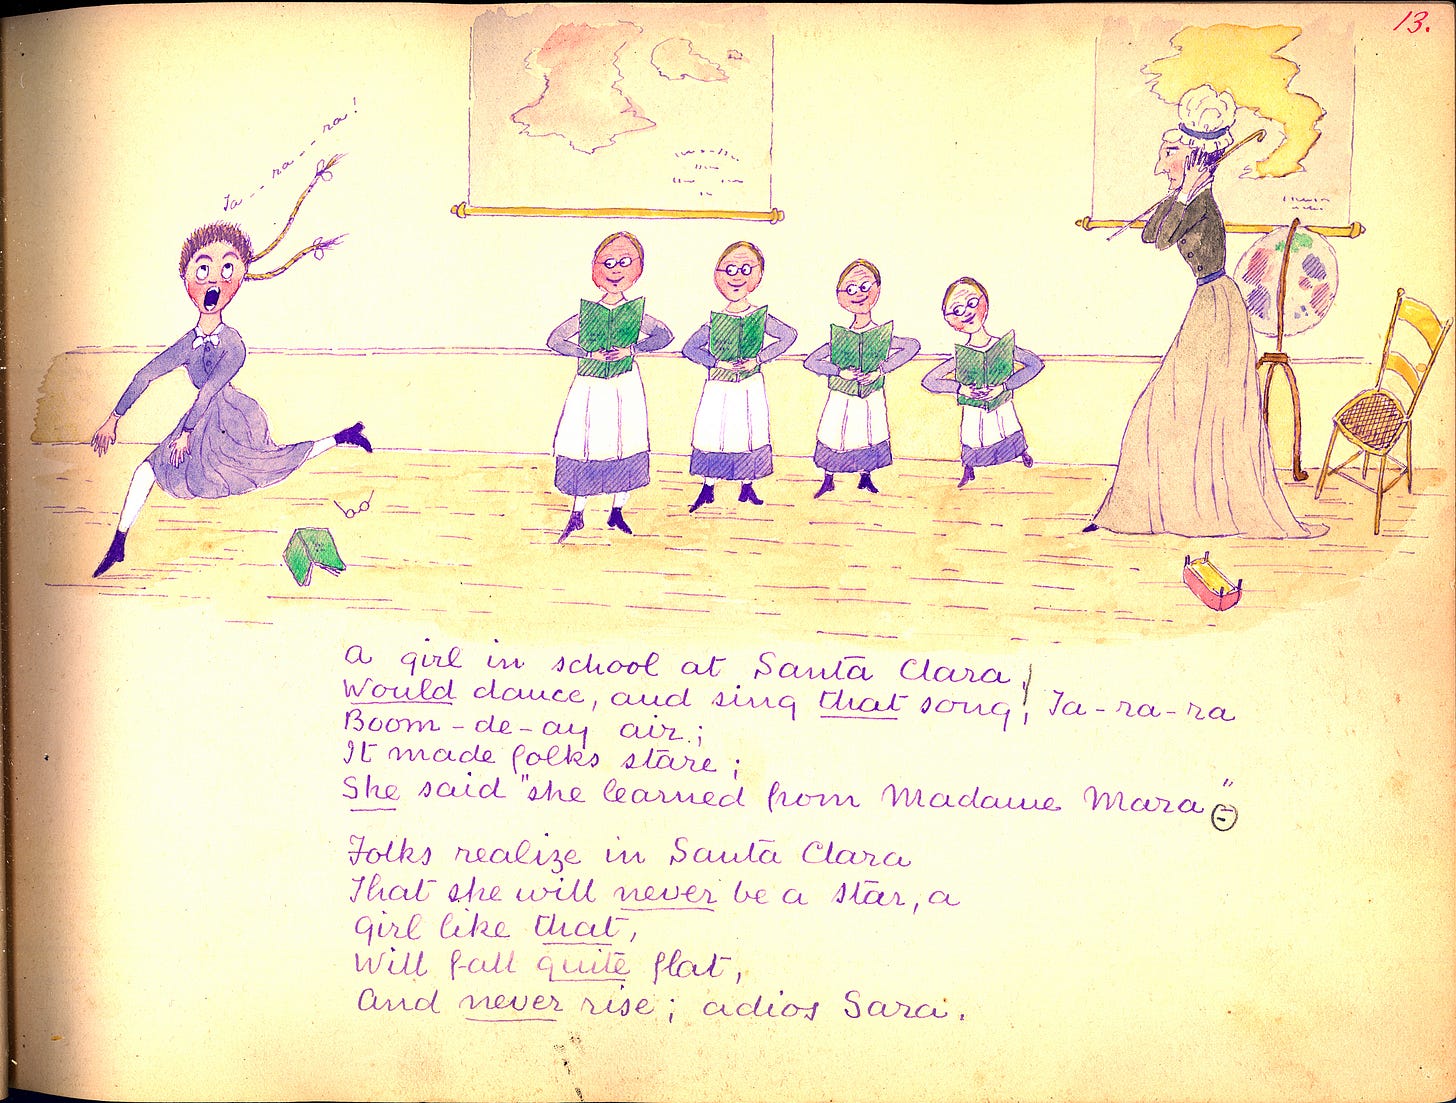 13.
Ta--ra--ra!
A girl in school at Santa Clara,
Would dance, and sing that song, Ta-ra-ra
Boom-de-ay air;
It made folks stare;
She said "she learned from Madame Mara"
Folks realize in Santa Clara
That she will never be a star, a
girl like that,
Will fall quite flat,
And never rise; adios Sara.